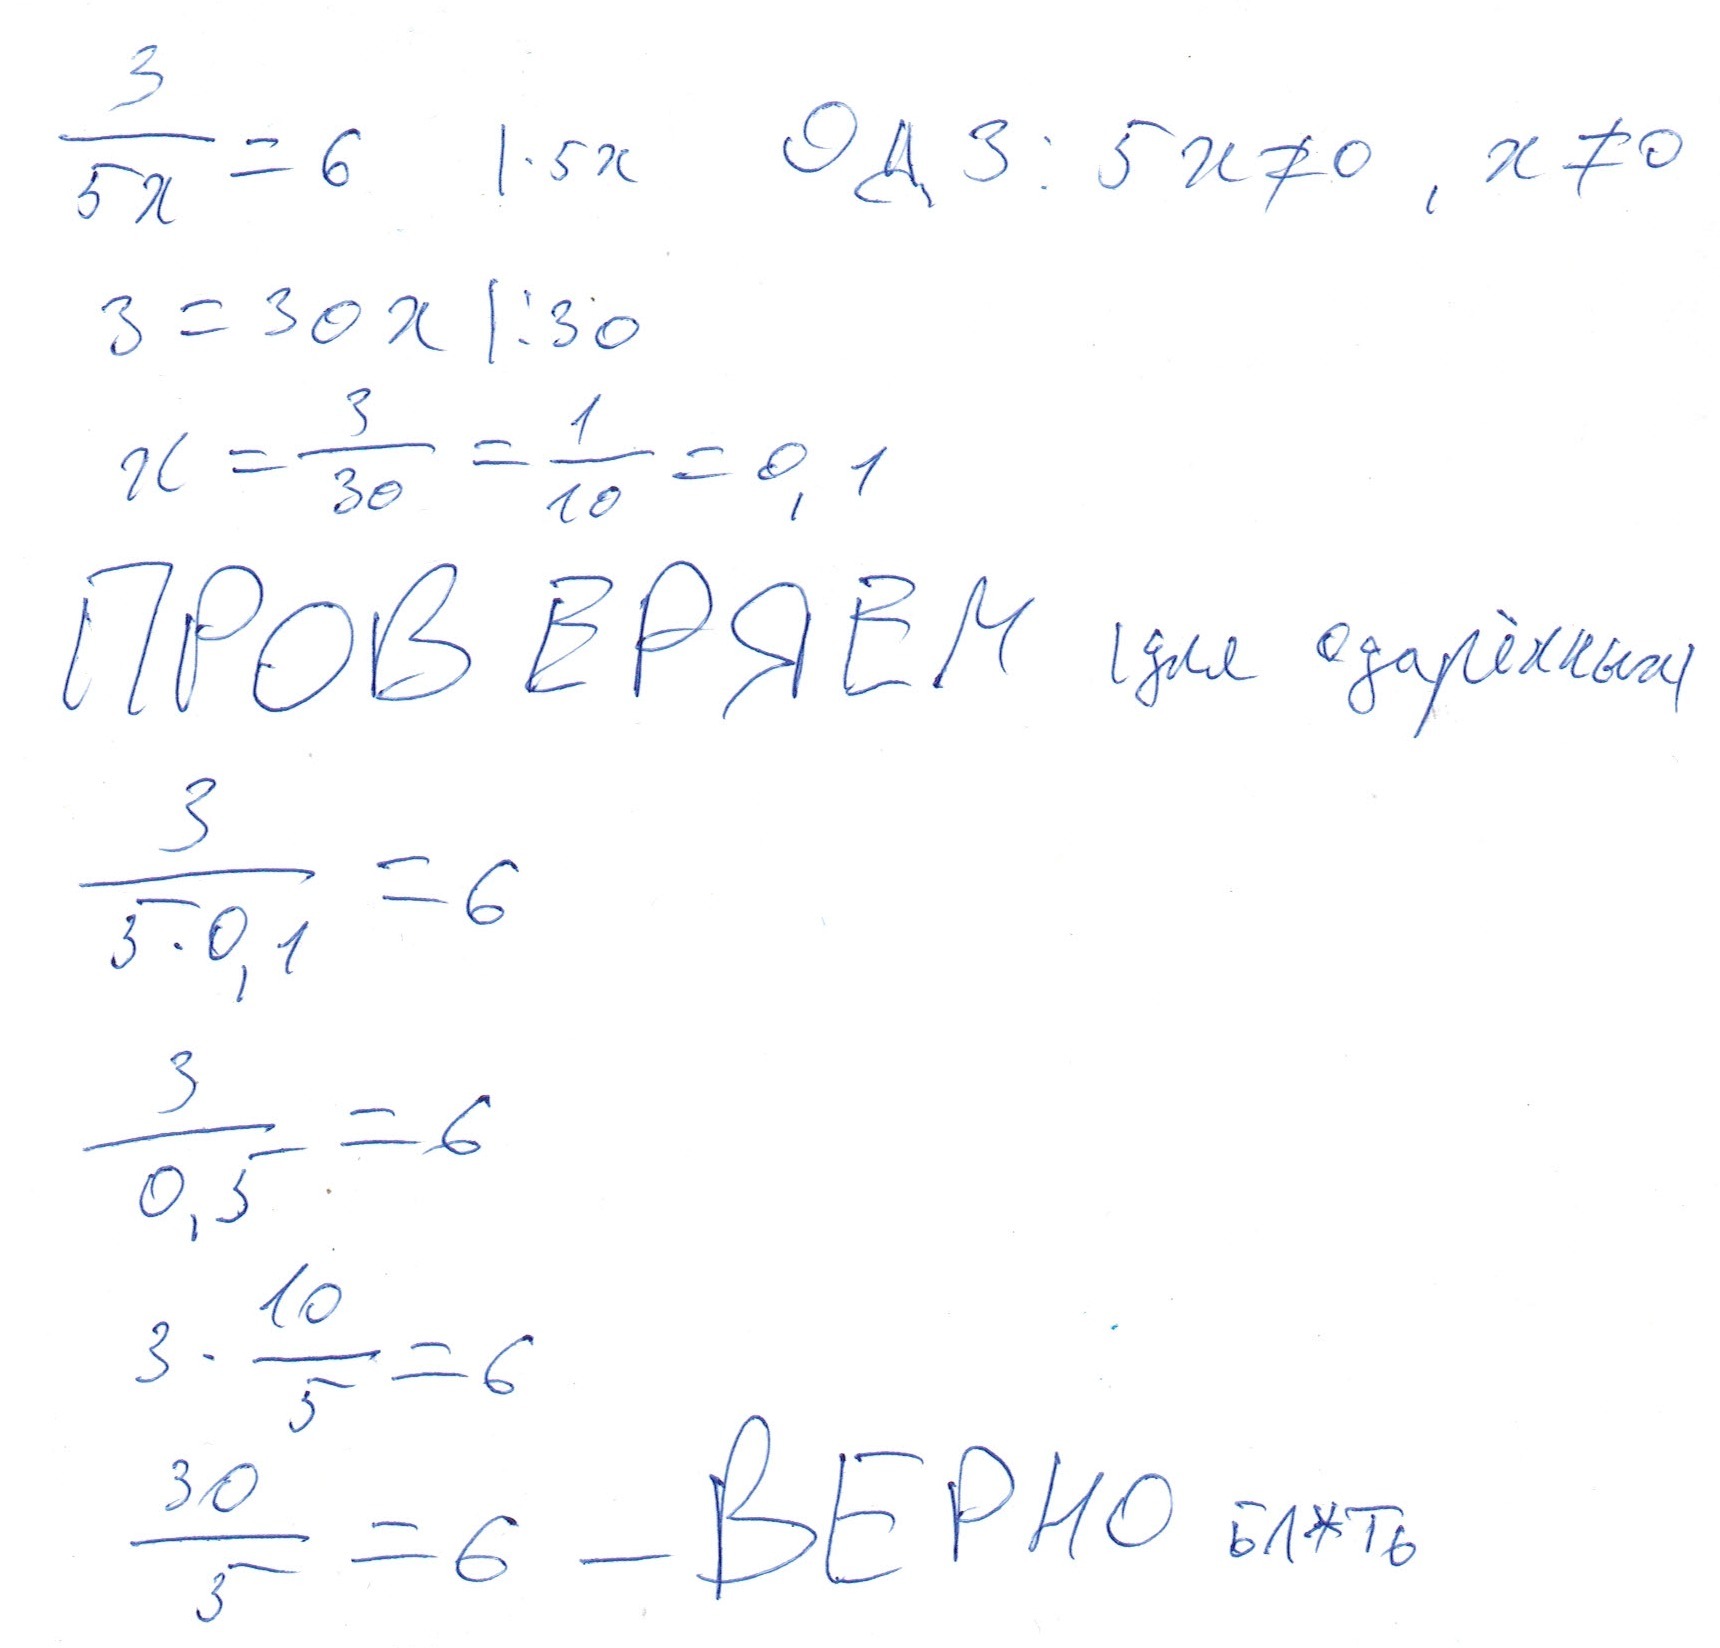 3/5x = 6 |·5x ОДЗ: 5x≠0, x≠0
3 = 30x |:30
x = 3/30 = 1/10 = 0,1
ПРОВЕРЯЕМ (для одарённых)
3/(5·0,1) = 6
3/0,5 = 6
3·10/5 = 6
30/5 = 6 – ВЕРНО БЛ*ТЬ